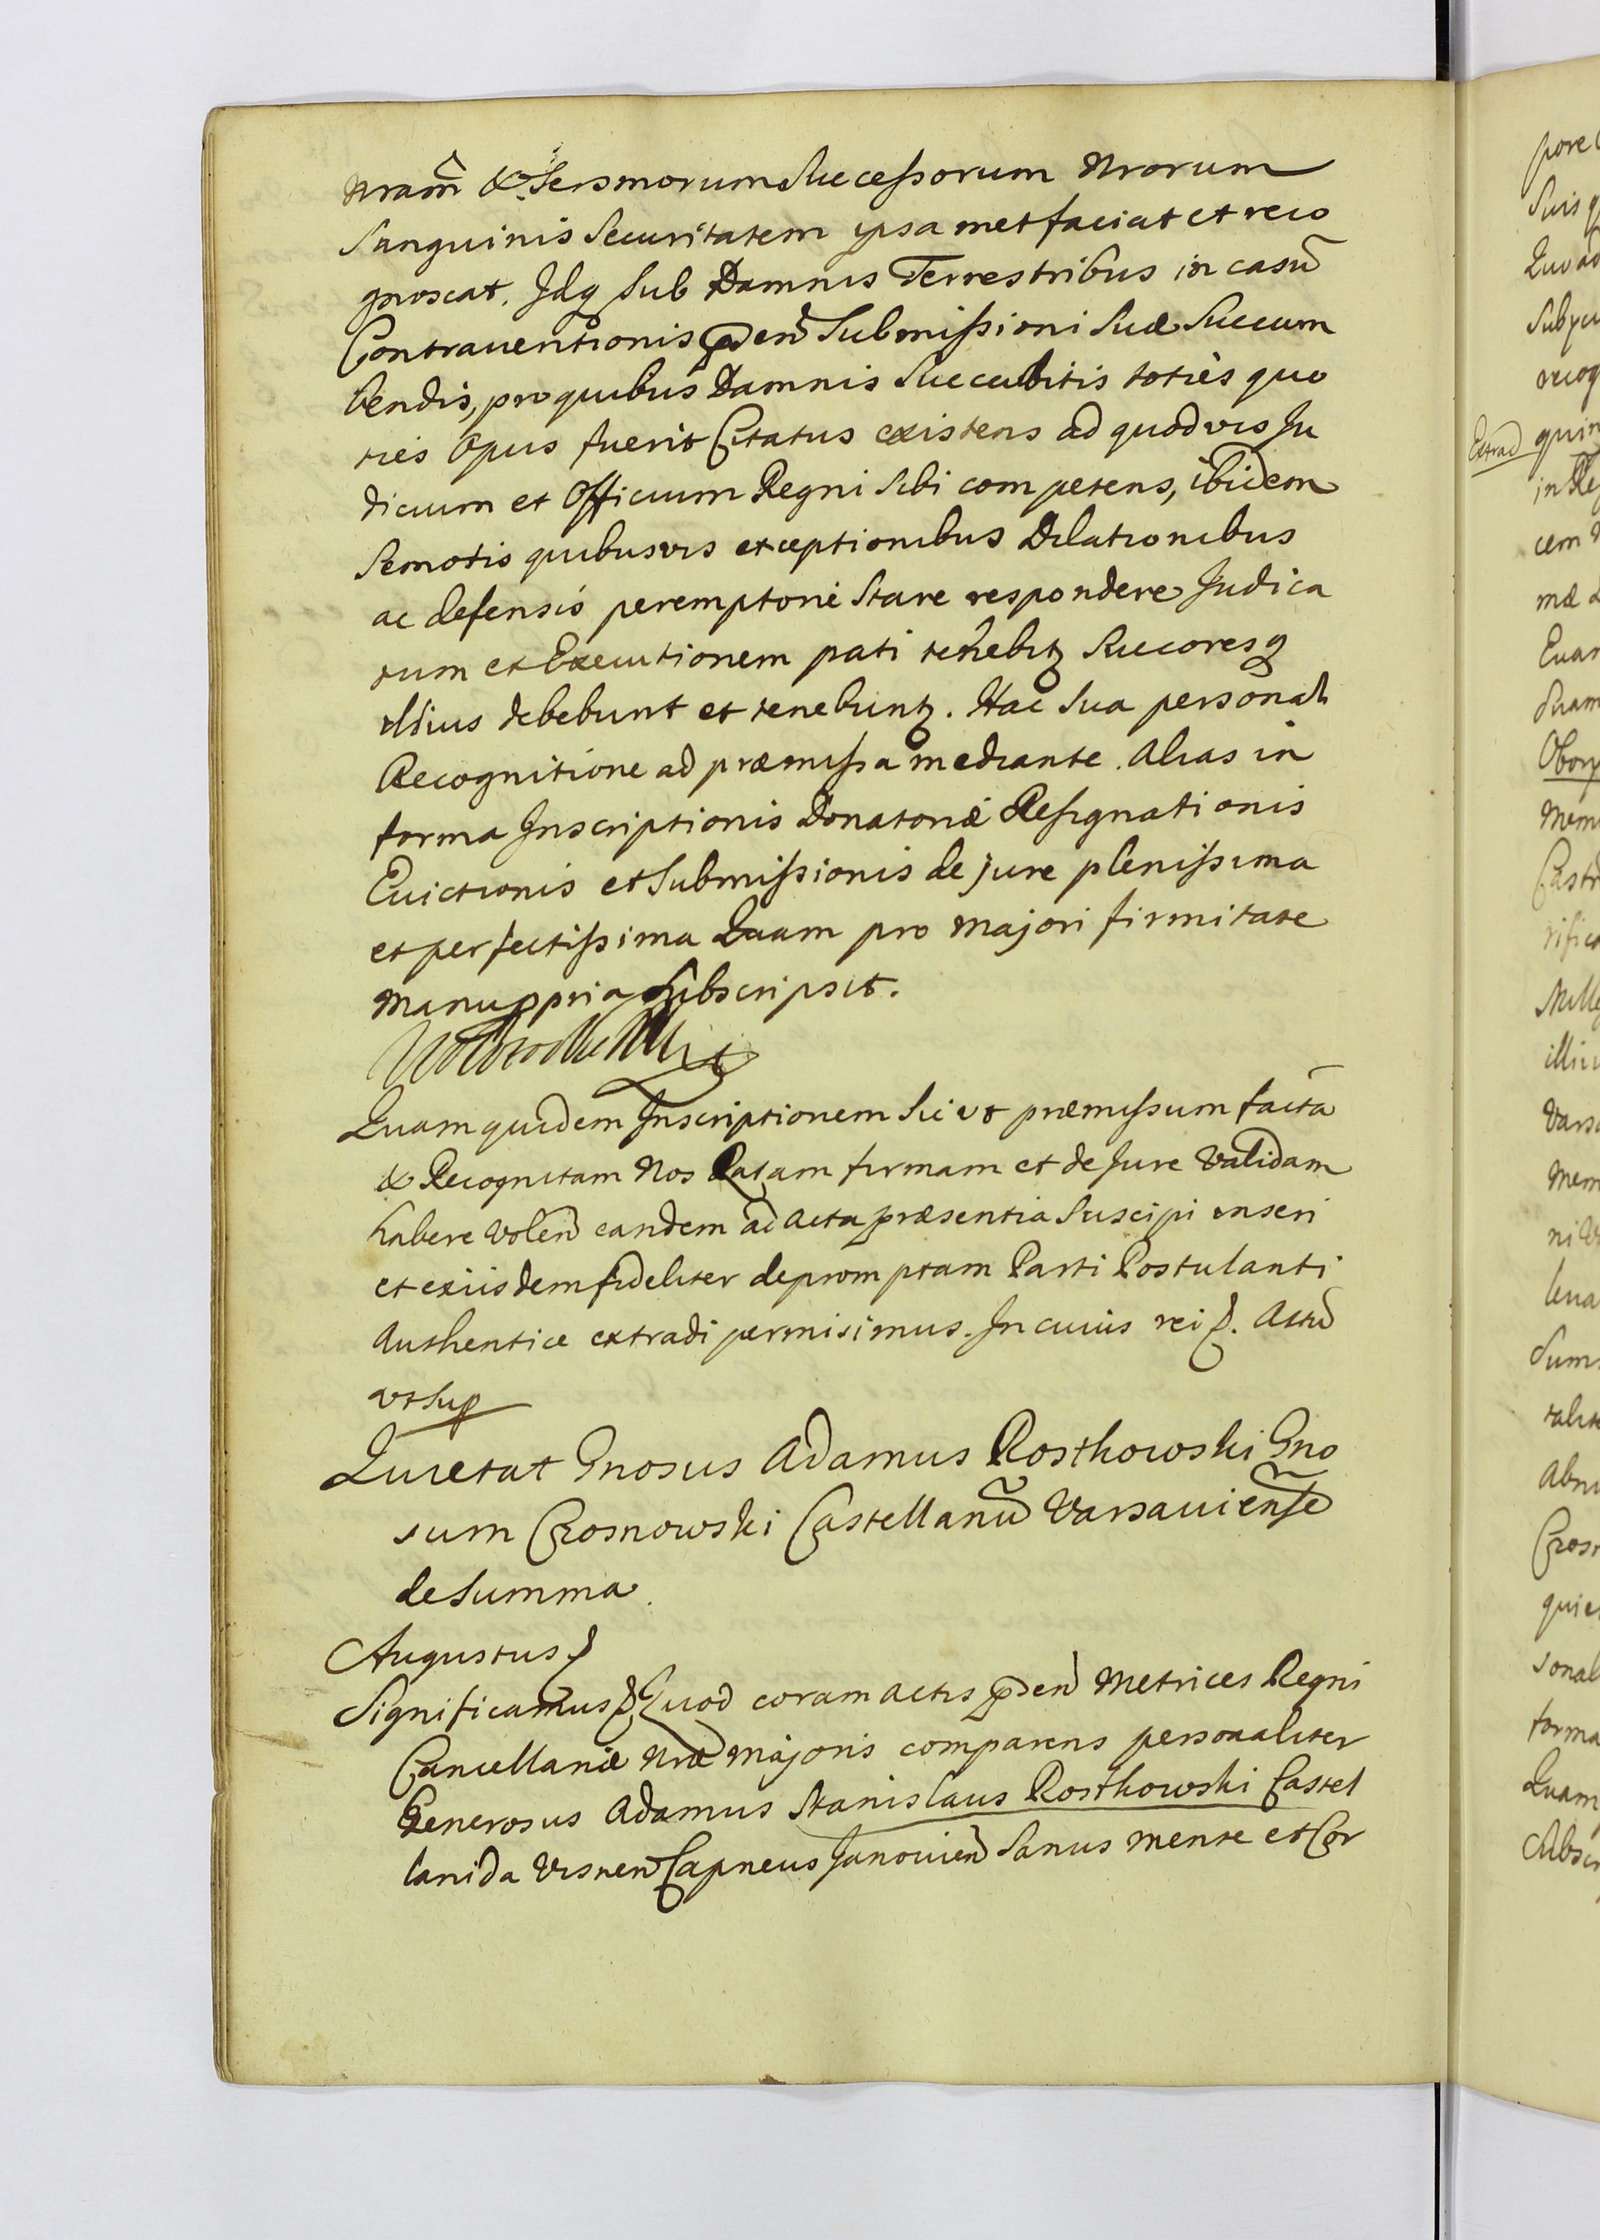 nram̄ & Sersmorum Successorum Nrorum
Sanguinis Securitatem ipsamet faciat et reco
gnoscat. Idq sub Damnis Terrestribus in casū
Contrauentionis pden̄ Submissioni Suæ Succum
bendis, pro quibus Damnis Succubitis toties quo
ties Opus fuerit Citatus existens ad quoduis Ju
dicium et Officium Regni sibi competens, ibidem
Semotis quibusuis exceptionibus Dilationibus
ac defensis peremptorie Stare respondere Judica
tum et Executionem pati tenebitz Succoresq
illius debebunt et tenebuntz. Hac Sua personali
Recognitione ad præmissa mediante. Alias in
forma Inscriptionis Donatoriæ Resignationis
Euictionis et Submissionis de jure plenissima
et perfectissima Quam pro majori firmitate
Manu ppria Subscripsit.
Quam quidem Inscriptionem Sic vt præmissum factā
& Recognitam Nos Ratam firmam et de Jure Validam
habere Volen̄ eandem ad Acta præsentia Suscipi inseri
et exiisdem fideliter depromptam Parti Postulanti
Authentice extradi permisimus. In cuius rei p. Actū
vt Sup
Quietat Gnosus Adamus Rosthowski Gno
sum Crosnowski Castellanū Varsauiensē
de Summa.
Augustus p
Significamus p Quod coram Actis pden̄ Metrices Regni
Cancellariæ Nræ Majoris comparens personaliter
Generosus Adamus Stanislaus Rosthowski Castel
lanida Visnen̄ Capneus Janouien̄ Sanus Mente et Cor
Extrad